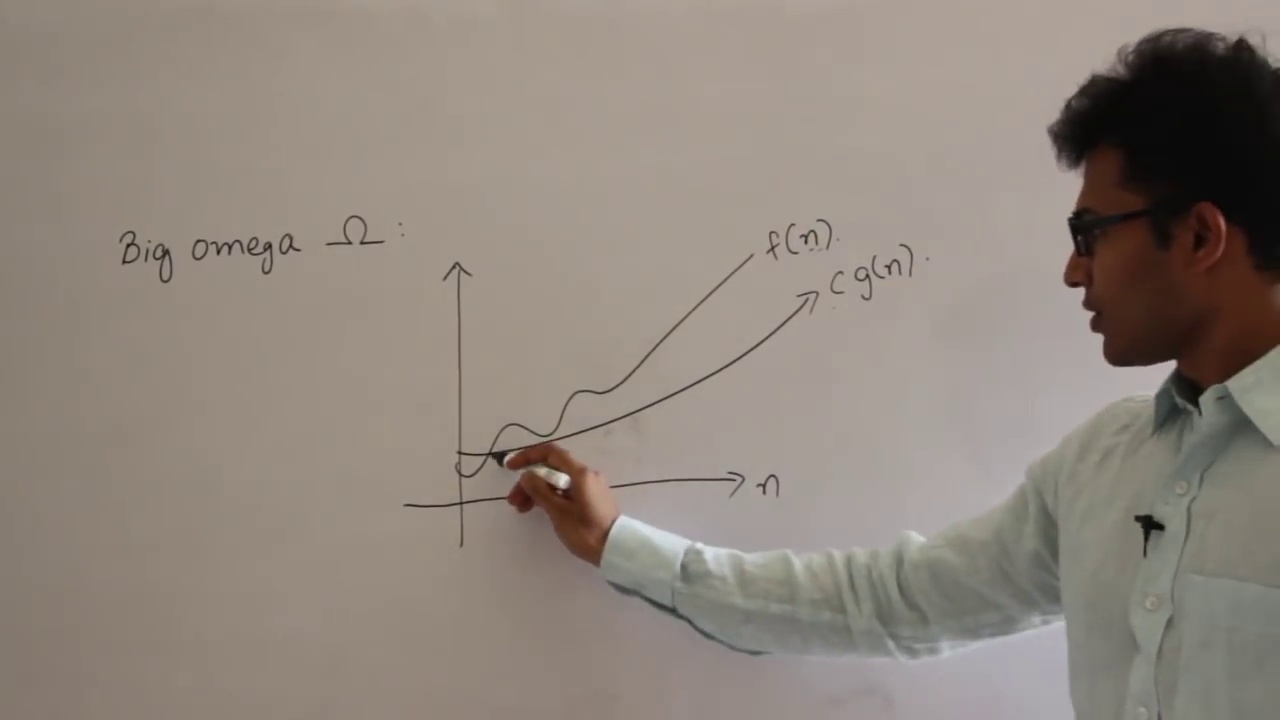 Big omega Ω:
f(n).
c g(n).
n